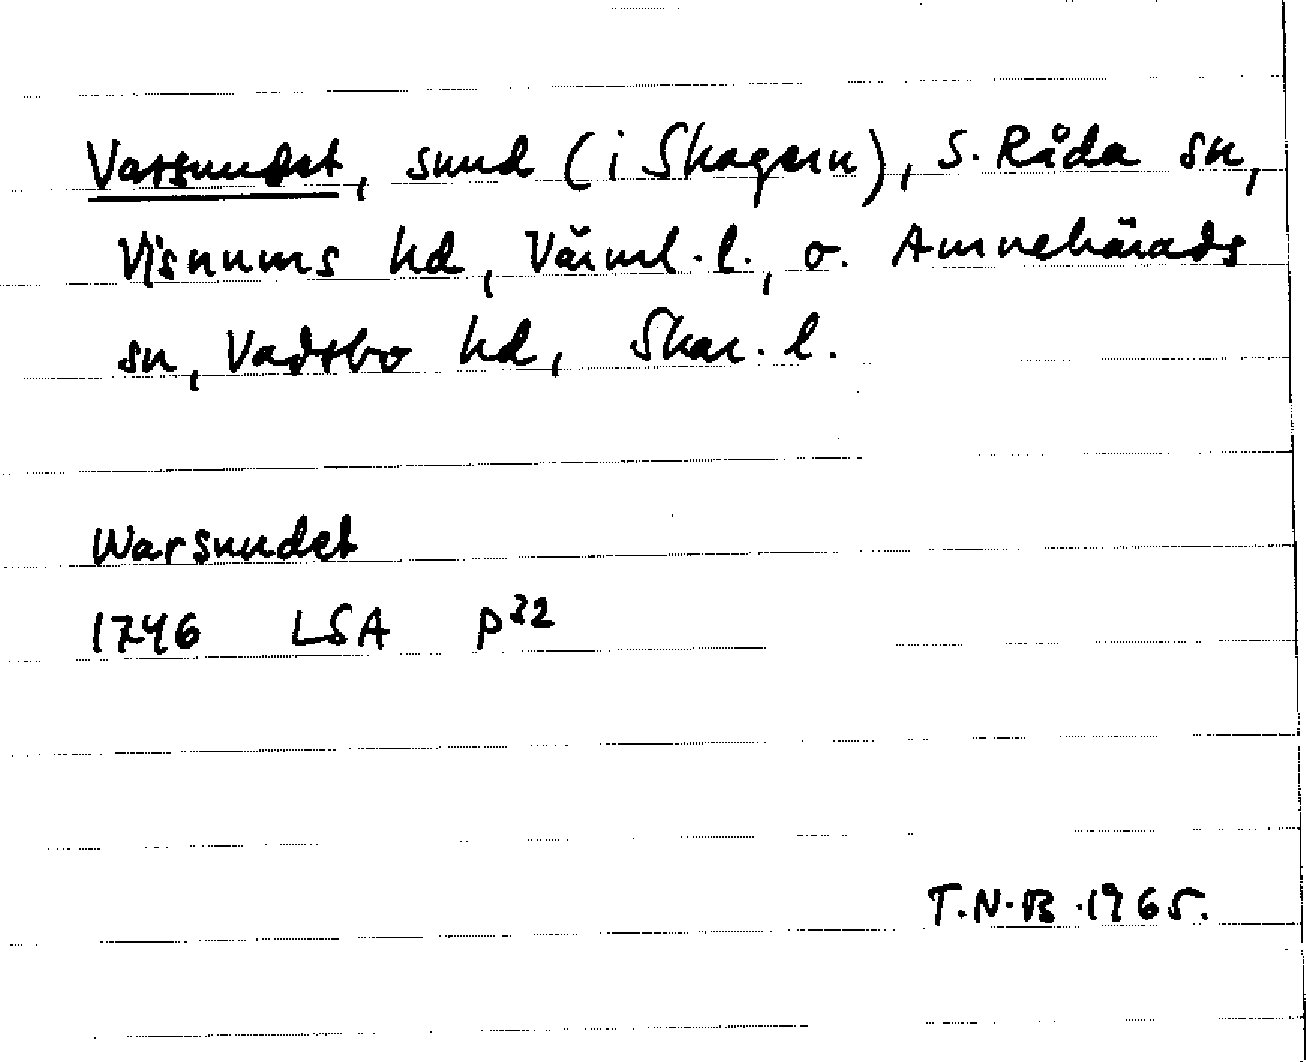 Varsundet, sund (i Skagern), S. Råda sn,
Visnums hd, Värml. l., o. Amnehärads
sn, Vadsbo hd, Skar. l.
Warsundet
1746 LSA P32
T.N.B. 1965.